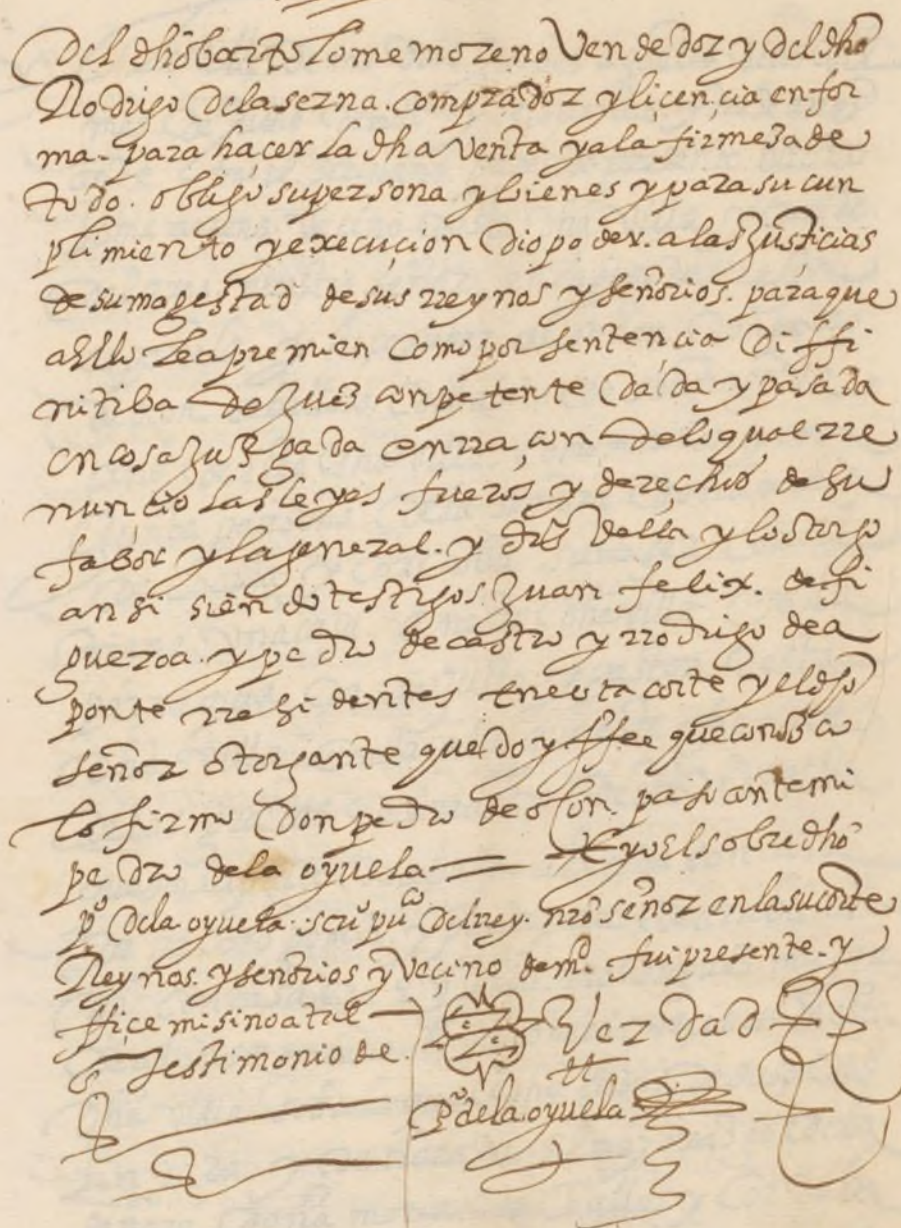 Del dho bartolome moreno Vendedor y Del dho
Rodrigo Delaserna. comprador y licencia en for
ma. para hacer La dha Venta y a la firmeza de
todo. obligo su persona y bienes y para su cun
plimiento y execucion Dio poder. a las Justicias
de su magestad de sus rreynos y señorios. para que
a Ello Le apremien Como por sentencia Diffi
nitiba de Juez conpetente Dada y pasada
en cosa Juzgada en rraçon de lo qual rre
nuncio Las leyes fueros y derechos de su
fabor y la general. y drs della y lo otorgo
ansi siendo testigos Juan felix. de fi
gueroa. y pedro de castro y rrodrigo de a
ponte rresidentes en esta corte y el dho
señor otorgante que doy ffee que conozco
Lo firmo Don pedro de osson. paso ante mi
pedro de la oyuela = E yo El sobredho
po De la oyuela scriu puco Del rrey. nro señor en la su corte
Reynos. y señorios y Veçino de md. fui presente. y
ffice mi sino a tal
Testimonio de Verdad
po de la oyuela